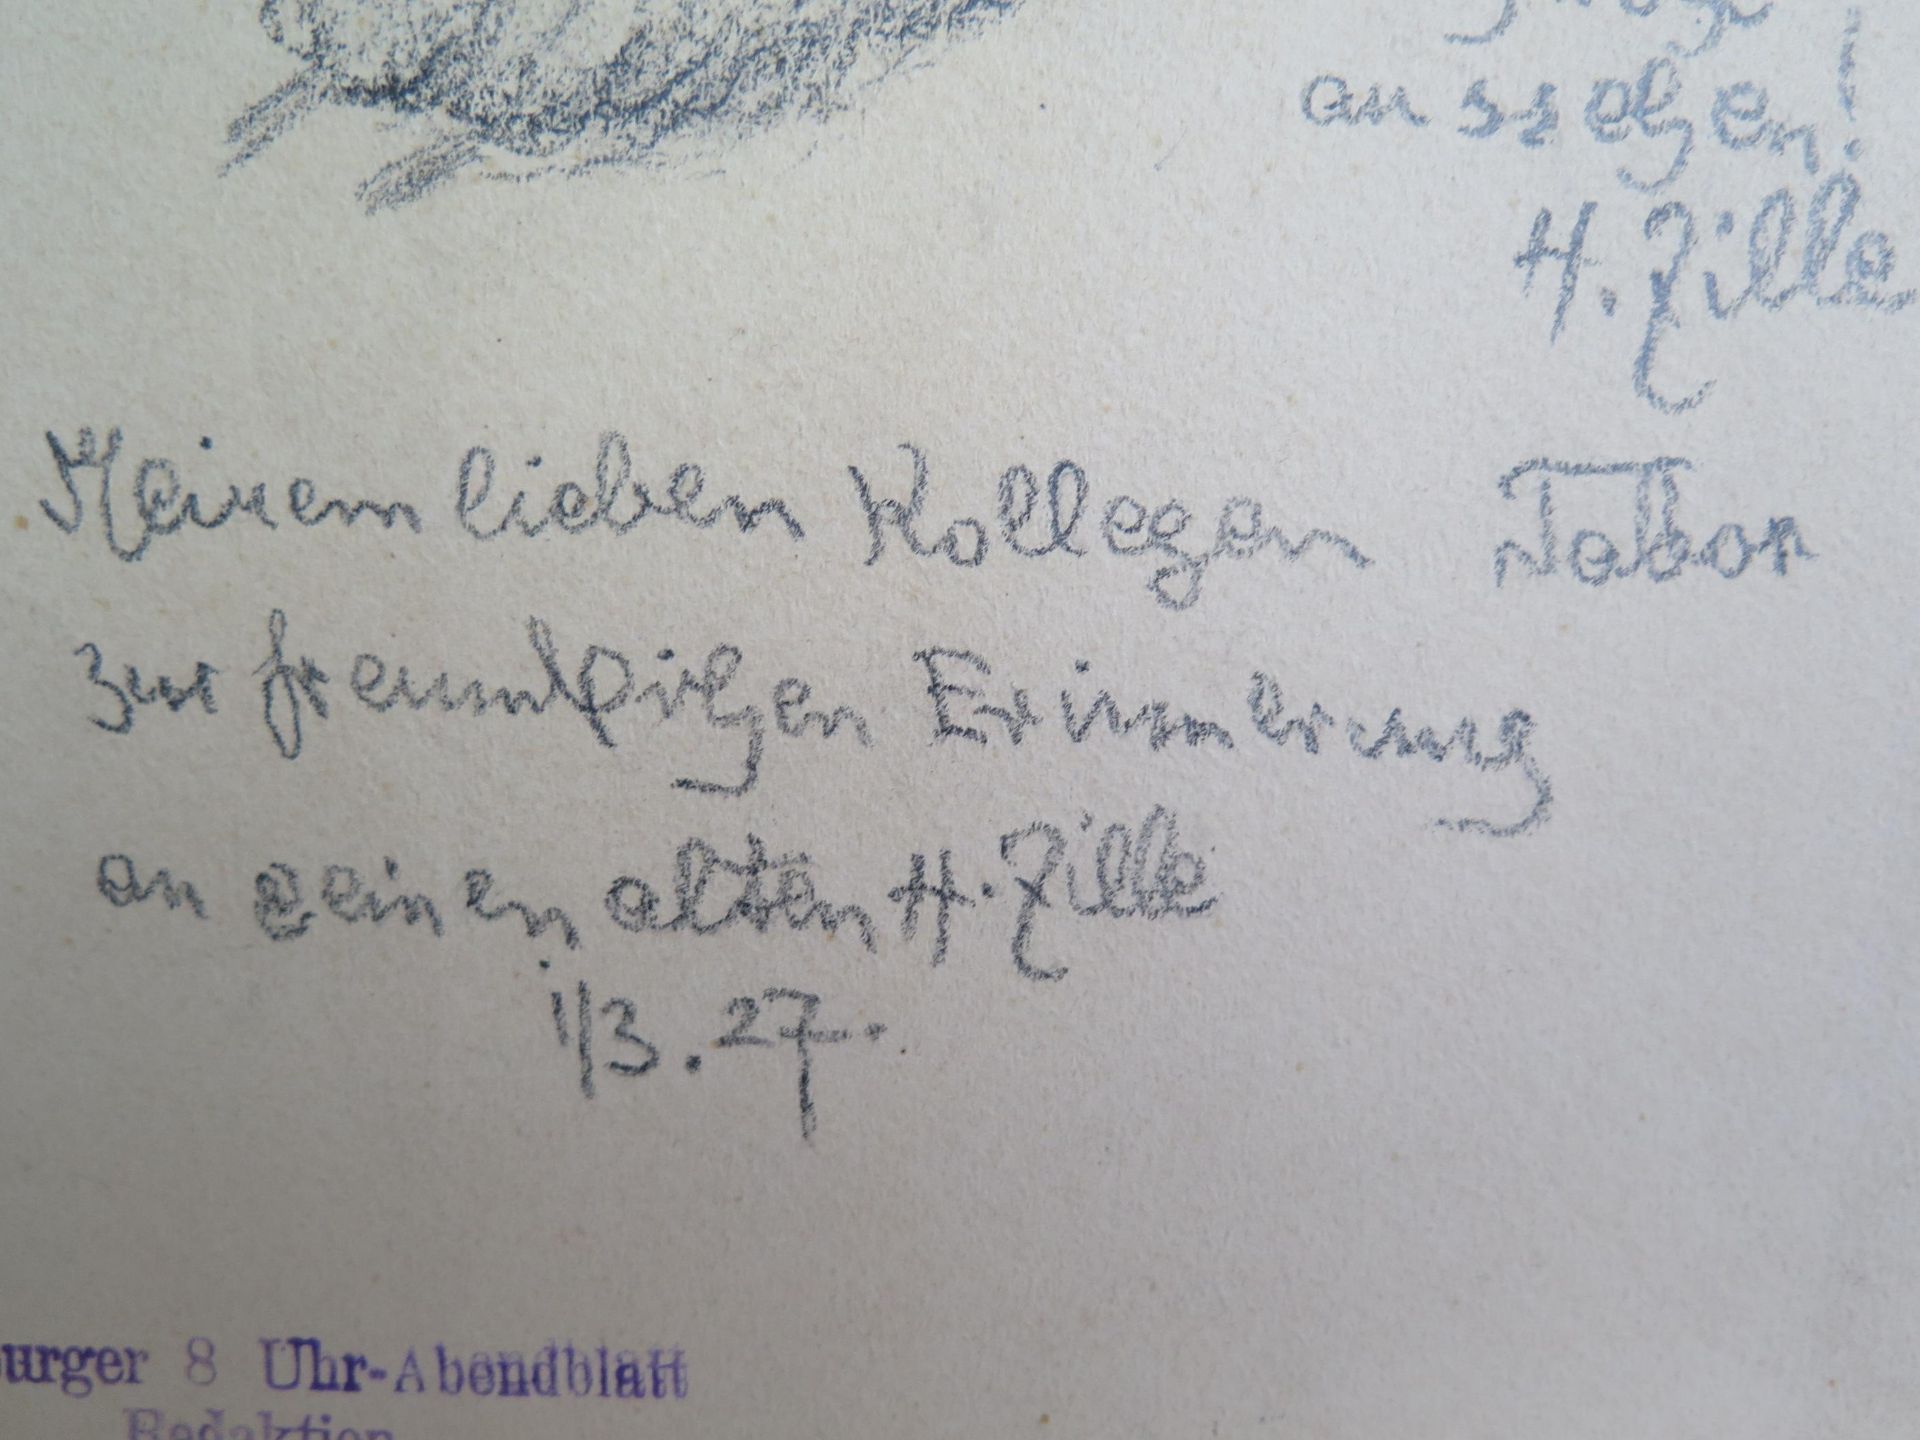 aussehen!
H. Zille
Meinem lieben Kollegen Tabor
zur freundlichen Erinnerung
an seinen alten H. Zille
1/3. 27.
burger 8 Uhr-Abendblatt
Redaktion